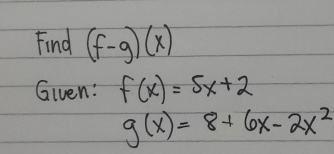 Find (f-g)(x)
Given: f(x) = 5x+2
g(x) = 8+6x-2x²